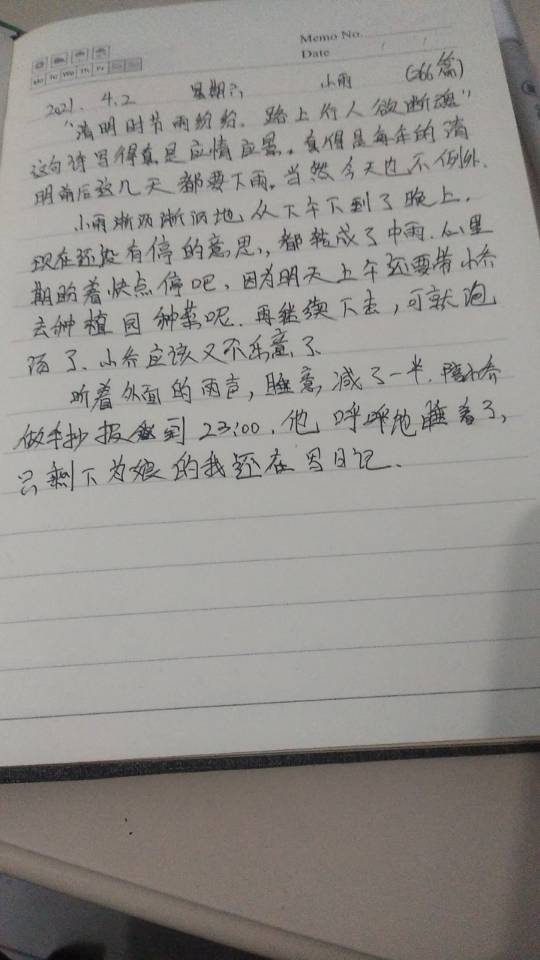 Memo No.
Date / /
Mo Tu We Th Fr
2021. 4.2 星期六 小雨 (266篇)
"清明时节雨纷纷. 路上行人欲断魂"
这句诗写得真是应情应景。真得是每年的清
明前后这几天都要下雨。当然今天也不例外.
小雨淅沥淅沥地从下午下到了晚上.
现在还没有停的意思,都转成了中雨.心里
期盼着快点停吧,因为明天上午还要带小乔
去种植园种菜呢.再继续下去,可就泡
汤了.小乔应该又不乐意了.
听着外面的雨声,睡意减了一半.陪小乔
做手抄报到23:00.他呼呼地睡着了,
只剩下为娘的我还在写日记.